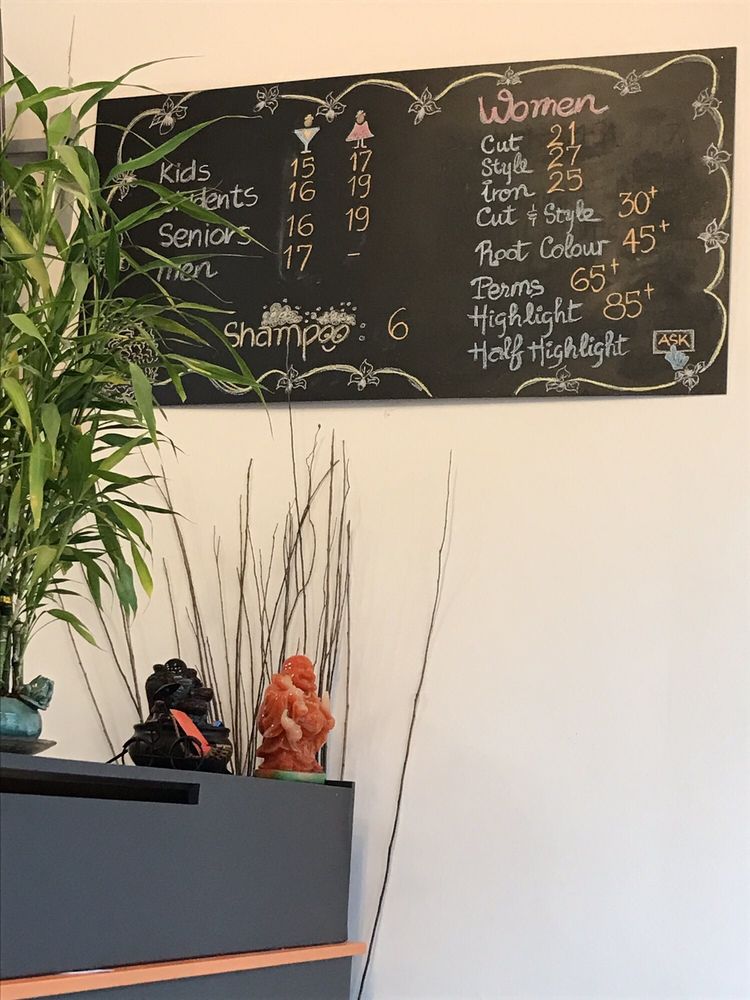 Kids 15 17
Students 16 19
Seniors 16 19
Men 17 -
Shampoo : 6
Women
Cut 21
Style 27
Iron 25
Cut & Style 30+
Root Colour 45+
Perms 65+
Highlight 85+
Half Highlight ASK